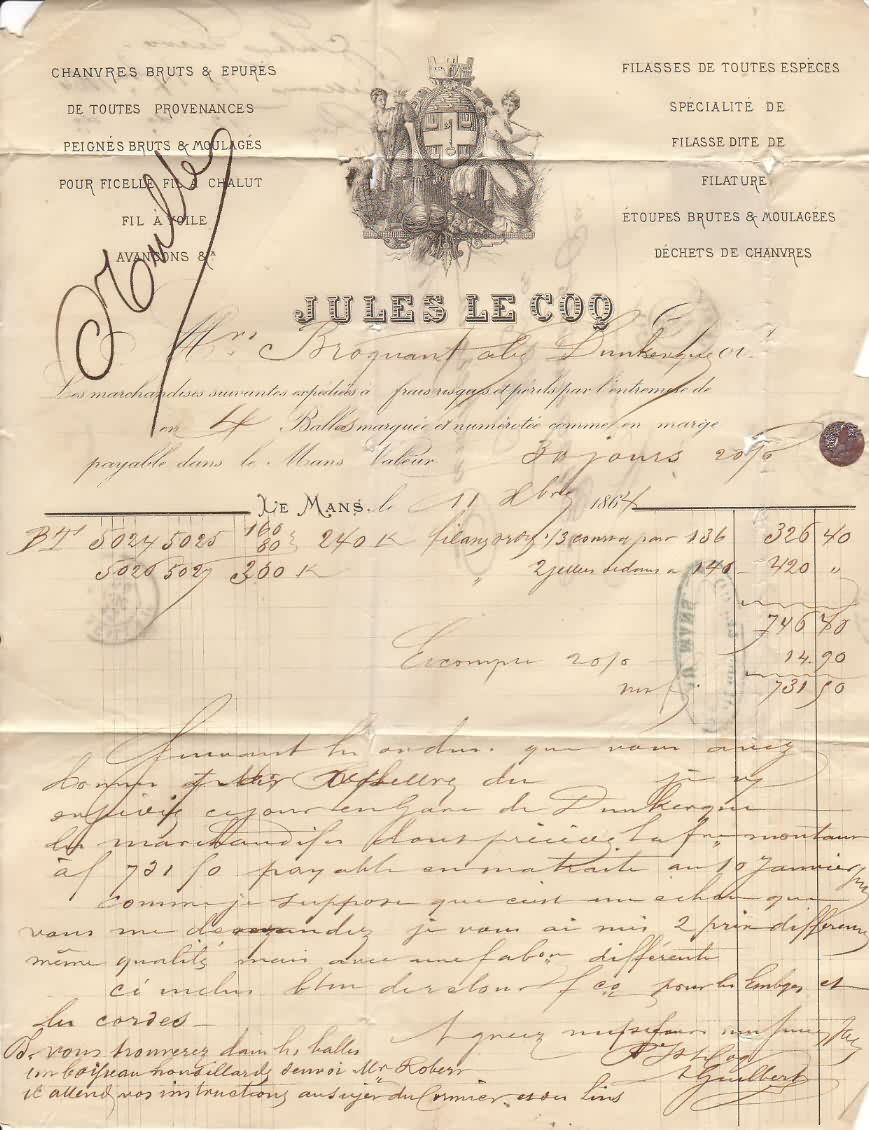 CHANVRES BRUTS & EPURÉS
DE TOUTES PROVENANCES
PEIGNÉS BRUTS & MOULAGÉS
POUR FICELLE FIL À CHALUT
FIL À VOILE
AVANSONS &ᴬ
FILASSES DE TOUTES ESPÈCES
SPÉCIALITÉ DE
FILASSE DITE DE
FILATURE
ÉTOUPES BRUTES & MOULAGÉES
DÉCHETS DE CHANVRES
JULES LE COQ
Mrs Broquant Dunkerque
Les marchandises suivantes expédiées à frais risques et périls par l'entremise de
en 4 Balles marquée et numérotée comme en marge
payable dans le Mans Valeur 30 jours 2%
LE MANS, le 11 Xbre 1864
Bts 5024 5025 160 80 240 K 1/3 par 136 326 40
5026 5027 300 K " 2 à 140 420 "
746 40
Escompte 2% 14.90
net f. 731 50
Suivant les ordres que vous avez
donnés à Mr du je vs
expédie ce jour en Gare de Dunkerque
les marchandises dont précède la fre montant
à f 731 50 payable en ma traite au 10 Janvier
comme je suppose que c'est un échon que
vous me demandez je vous ai mis 2 prix différents
même qualité mais avec une façon différente
ci inclus btin de retour fco pour les Embges et
les cordes _
Agréez messieurs mes
vous trouverez dans les balles
un envoi Mr Robert
il attend vos instructions au sujet du Cormier et son lins
Pr J Le Coq
Guilbert